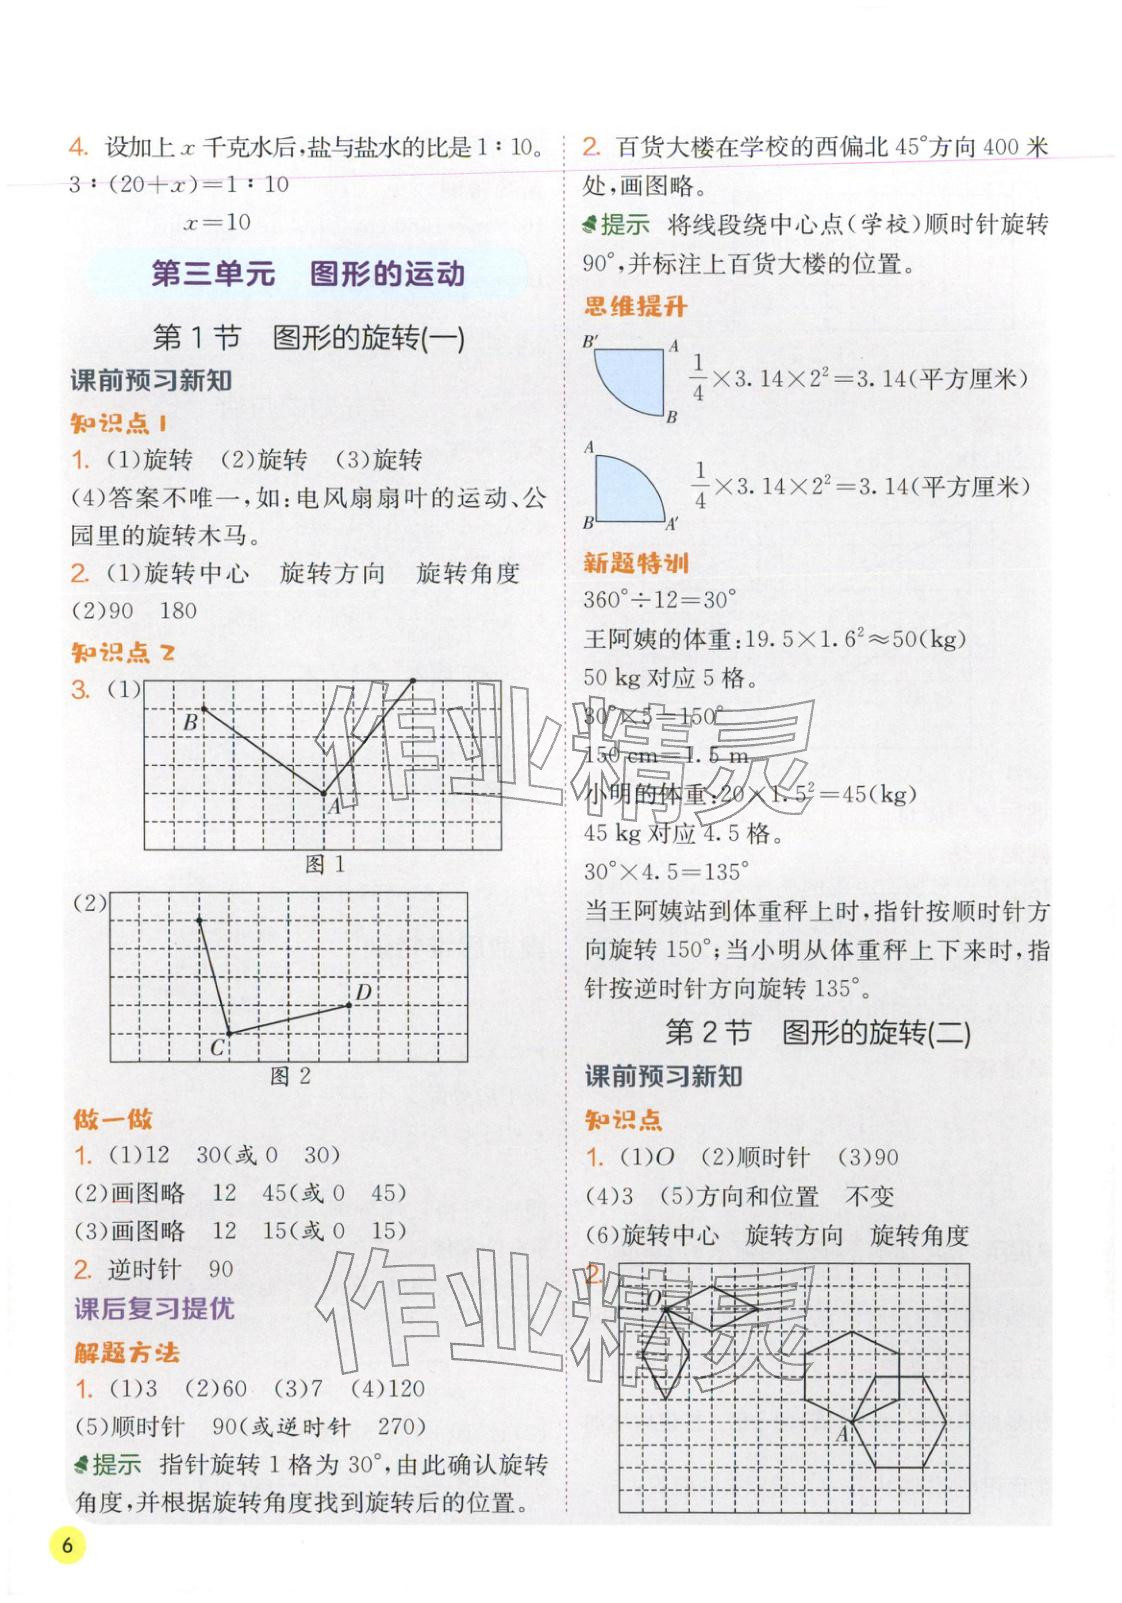 4. 设加上 x 千克水后,盐与盐水的比是 1∶10。
3∶(20+x)=1∶10
x=10
第三单元 图形的运动
第 1 节 图形的旋转(一)
课前预习新知
知识点 1
1. (1)旋转 (2)旋转 (3)旋转
(4)答案不唯一,如:电风扇扇叶的运动、公
园里的旋转木马。
2. (1)旋转中心 旋转方向 旋转角度
(2)90 180
知识点 2
3. (1)
B
A
图 1
(2)
D
C
图 2
做一做
1. (1)12 30(或 0 30)
(2)画图略 12 45(或 0 45)
(3)画图略 12 15(或 0 15)
2. 逆时针 90
课后复习提优
解题方法
1. (1)3 (2)60 (3)7 (4)120
(5)顺时针 90(或逆时针 270)
提示 指针旋转 1 格为 30°,由此确认旋转
角度,并根据旋转角度找到旋转后的位置。
6
2. 百货大楼在学校的西偏北 45°方向 400 米
处,画图略。
提示 将线段绕中心点(学校)顺时针旋转
90°,并标注上百货大楼的位置。
思维提升
B′ A
B
1/4×3.14×2²=3.14(平方厘米)
A
B A′
1/4×3.14×2²=3.14(平方厘米)
新题特训
360°÷12=30°
王阿姨的体重:19.5×1.6²≈50(kg)
50 kg 对应 5 格。
30°×5=150°
150 cm=1.5 m
小明的体重:20×1.5²=45(kg)
45 kg 对应 4.5 格。
30°×4.5=135°
当王阿姨站到体重秤上时,指针按顺时针方
向旋转 150°;当小明从体重秤上下来时,指
针按逆时针方向旋转 135°。
第 2 节 图形的旋转(二)
课前预习新知
知识点
1. (1)O (2)顺时针 (3)90
(4)3 (5)方向和位置 不变
(6)旋转中心 旋转方向 旋转角度
2.
O
A
作业精灵
作业精灵